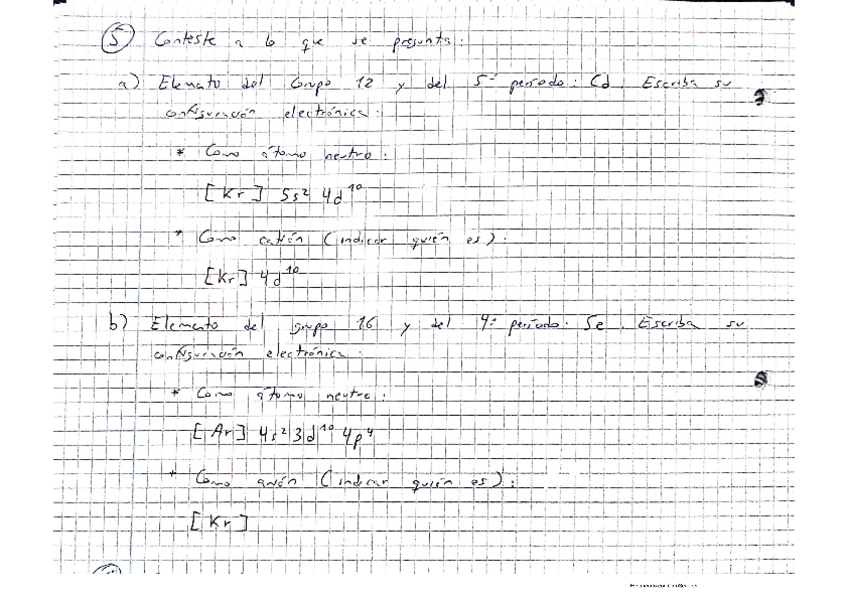 5 Conteste a lo que se pregunta:
a) Elemento del Grupo 12 y del 5º período: Cd. Escriba su
configuración electrónica:
* Como átomo neutro:
[Kr] 5s² 4d¹⁰
* Como catión (indicar quién es):
[Kr] 4d¹⁰
b) Elemento del grupo 16 y del 4º período: Se. Escriba su
configuración electrónica:
* Como átomo neutro:
[Ar] 4s² 3d¹⁰ 4p⁴
* Como anión (indicar quién es):
[Kr]